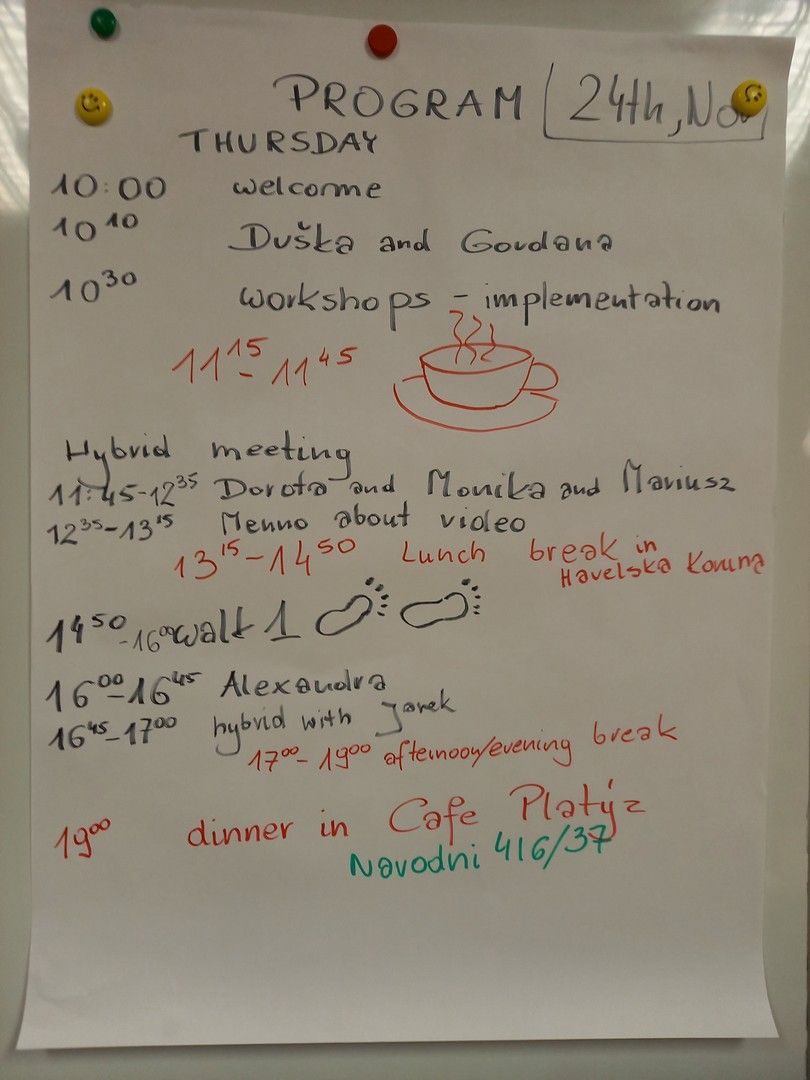 PROGRAM 24th, Nov
THURSDAY
10:00 welcome
10¹⁰ Duška and Gordana
10³⁰ workshops - implementation
11¹⁵ - 11⁴⁵
Hybrid meeting
11:45-12³⁵ Dorota and Monika and Mariusz
12³⁵-13¹⁵ Menno about video
13¹⁵-14⁵⁰ Lunch break in
Havelska Koruna
14⁵⁰-16⁰⁰ walk 1
16⁰⁰-16⁴⁵ Alexandra
16⁴⁵-17⁰⁰ hybrid with Jarek
17⁰⁰-19⁰⁰ afternoon/evening break
19⁰⁰ dinner in Cafe Platýz
Narodni 416/37